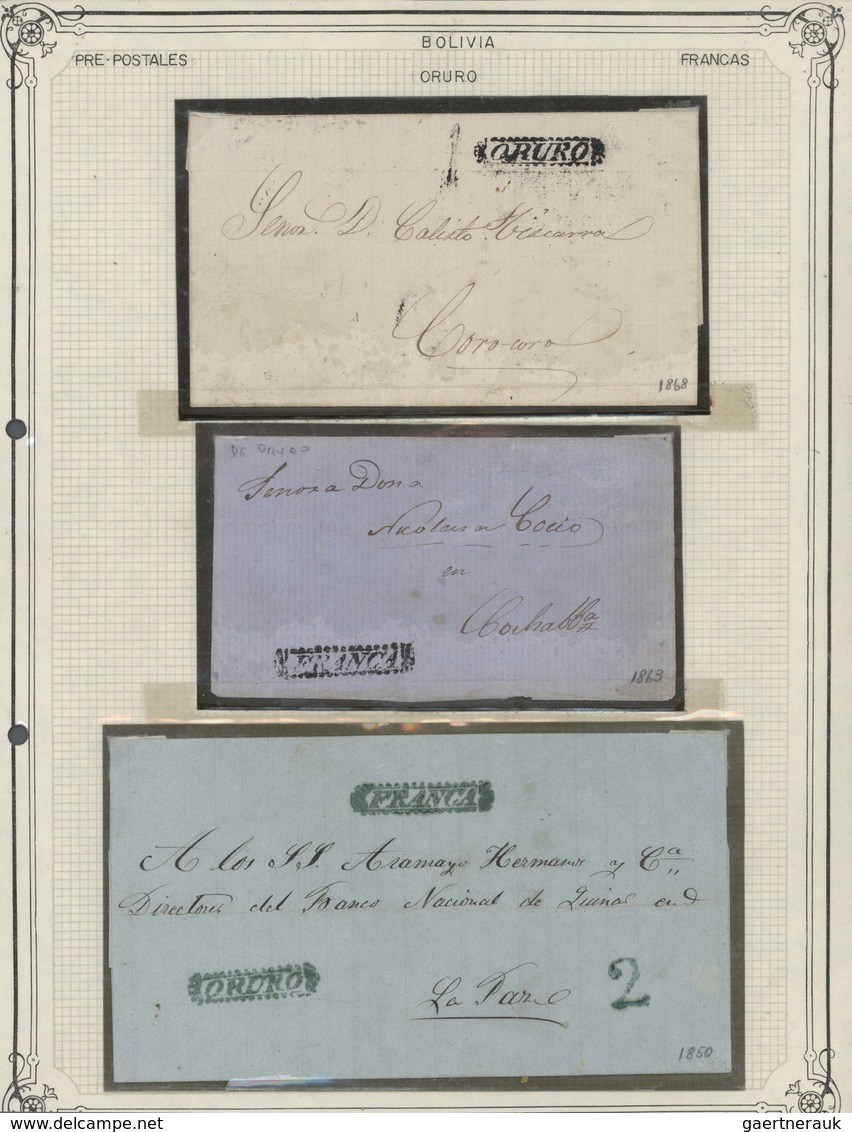 BOLIVIA
PRE-POSTALES
FRANCAS
ORURO
1
ORURO
Señor. D. Calisto Viscarra
Corocoro
1868
DE ORURO
Senora Dona
Nicolasa Cocio
en
Cochabba
FRANCA
1863
FRANCA
A los S.S. Aramayo Hermanos y Ca
Directores del Banco Nacional de Quinas en d
La Paz
ORURO
2
1850
gaertnerauk